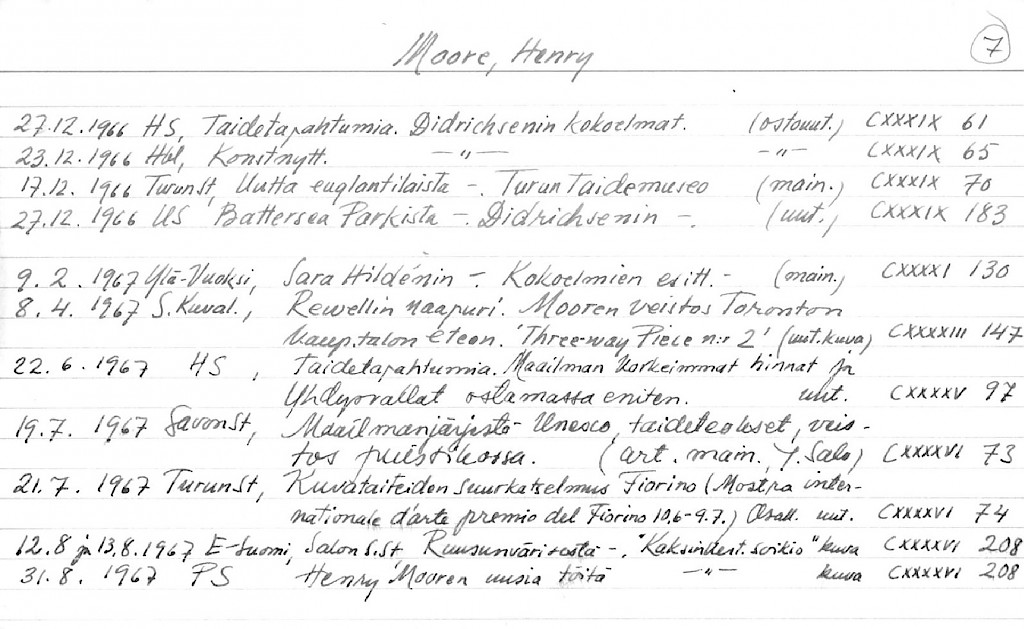 Moore, Henry 7
27.12.1966 HS, Taidetapahtumia. Didrichsenin kokoelmat. (ostouut.) CXXXIX 61
23.12.1966 Hbl, Konstnytt. —"— —"— CXXXIX 65
17.12.1966 TurunSt, Uutta englantilaista —. Turun Taidemuseo (main.) CXXXIX 70
27.12.1966 US Battersea Parkista —. Didrichsenin —. (uut.) CXXXIX 183
9.2.1967 Ylä-Vuoksi, Sara Hildénin —. Kokoelmien esitt. — (main.) CXXXXI 130
8.4.1967 S.Kuval., Rewellin naapuri. Mooren veistos Toronton
kaup.talon eteen. 'Three-way Piece n:r 2' (uut.kuva) CXXXXIII 147
22.6.1967 HS, Taidetapahtumia. Maailman korkeimmat hinnat ja
Yhdysvallat ostamassa eniten. uut. CXXXXV 97
19.7.1967 SavonSt, Maailmanjärjestö Unesco, taideteokset, veis-
tos puistikossa. (art. main. Y. Salo) CXXXXVI 73
21.7.1967 TurunSt, Kuvataiteiden suurkatselmus Fiorino (Mostra inter-
nationale d'arte premio del Fiorino 10.6-9.7.) Osall. uut. CXXXXVI 74
12.8 ja 13.8.1967 E-Suomi, Salon S.St, Ruusunvärisestä —. "Kaksinkert. soikio" kuva CXXXXVI 208
31.8.1967 PS Henry Mooren uusia töitä —"— kuva CXXXXVI 208